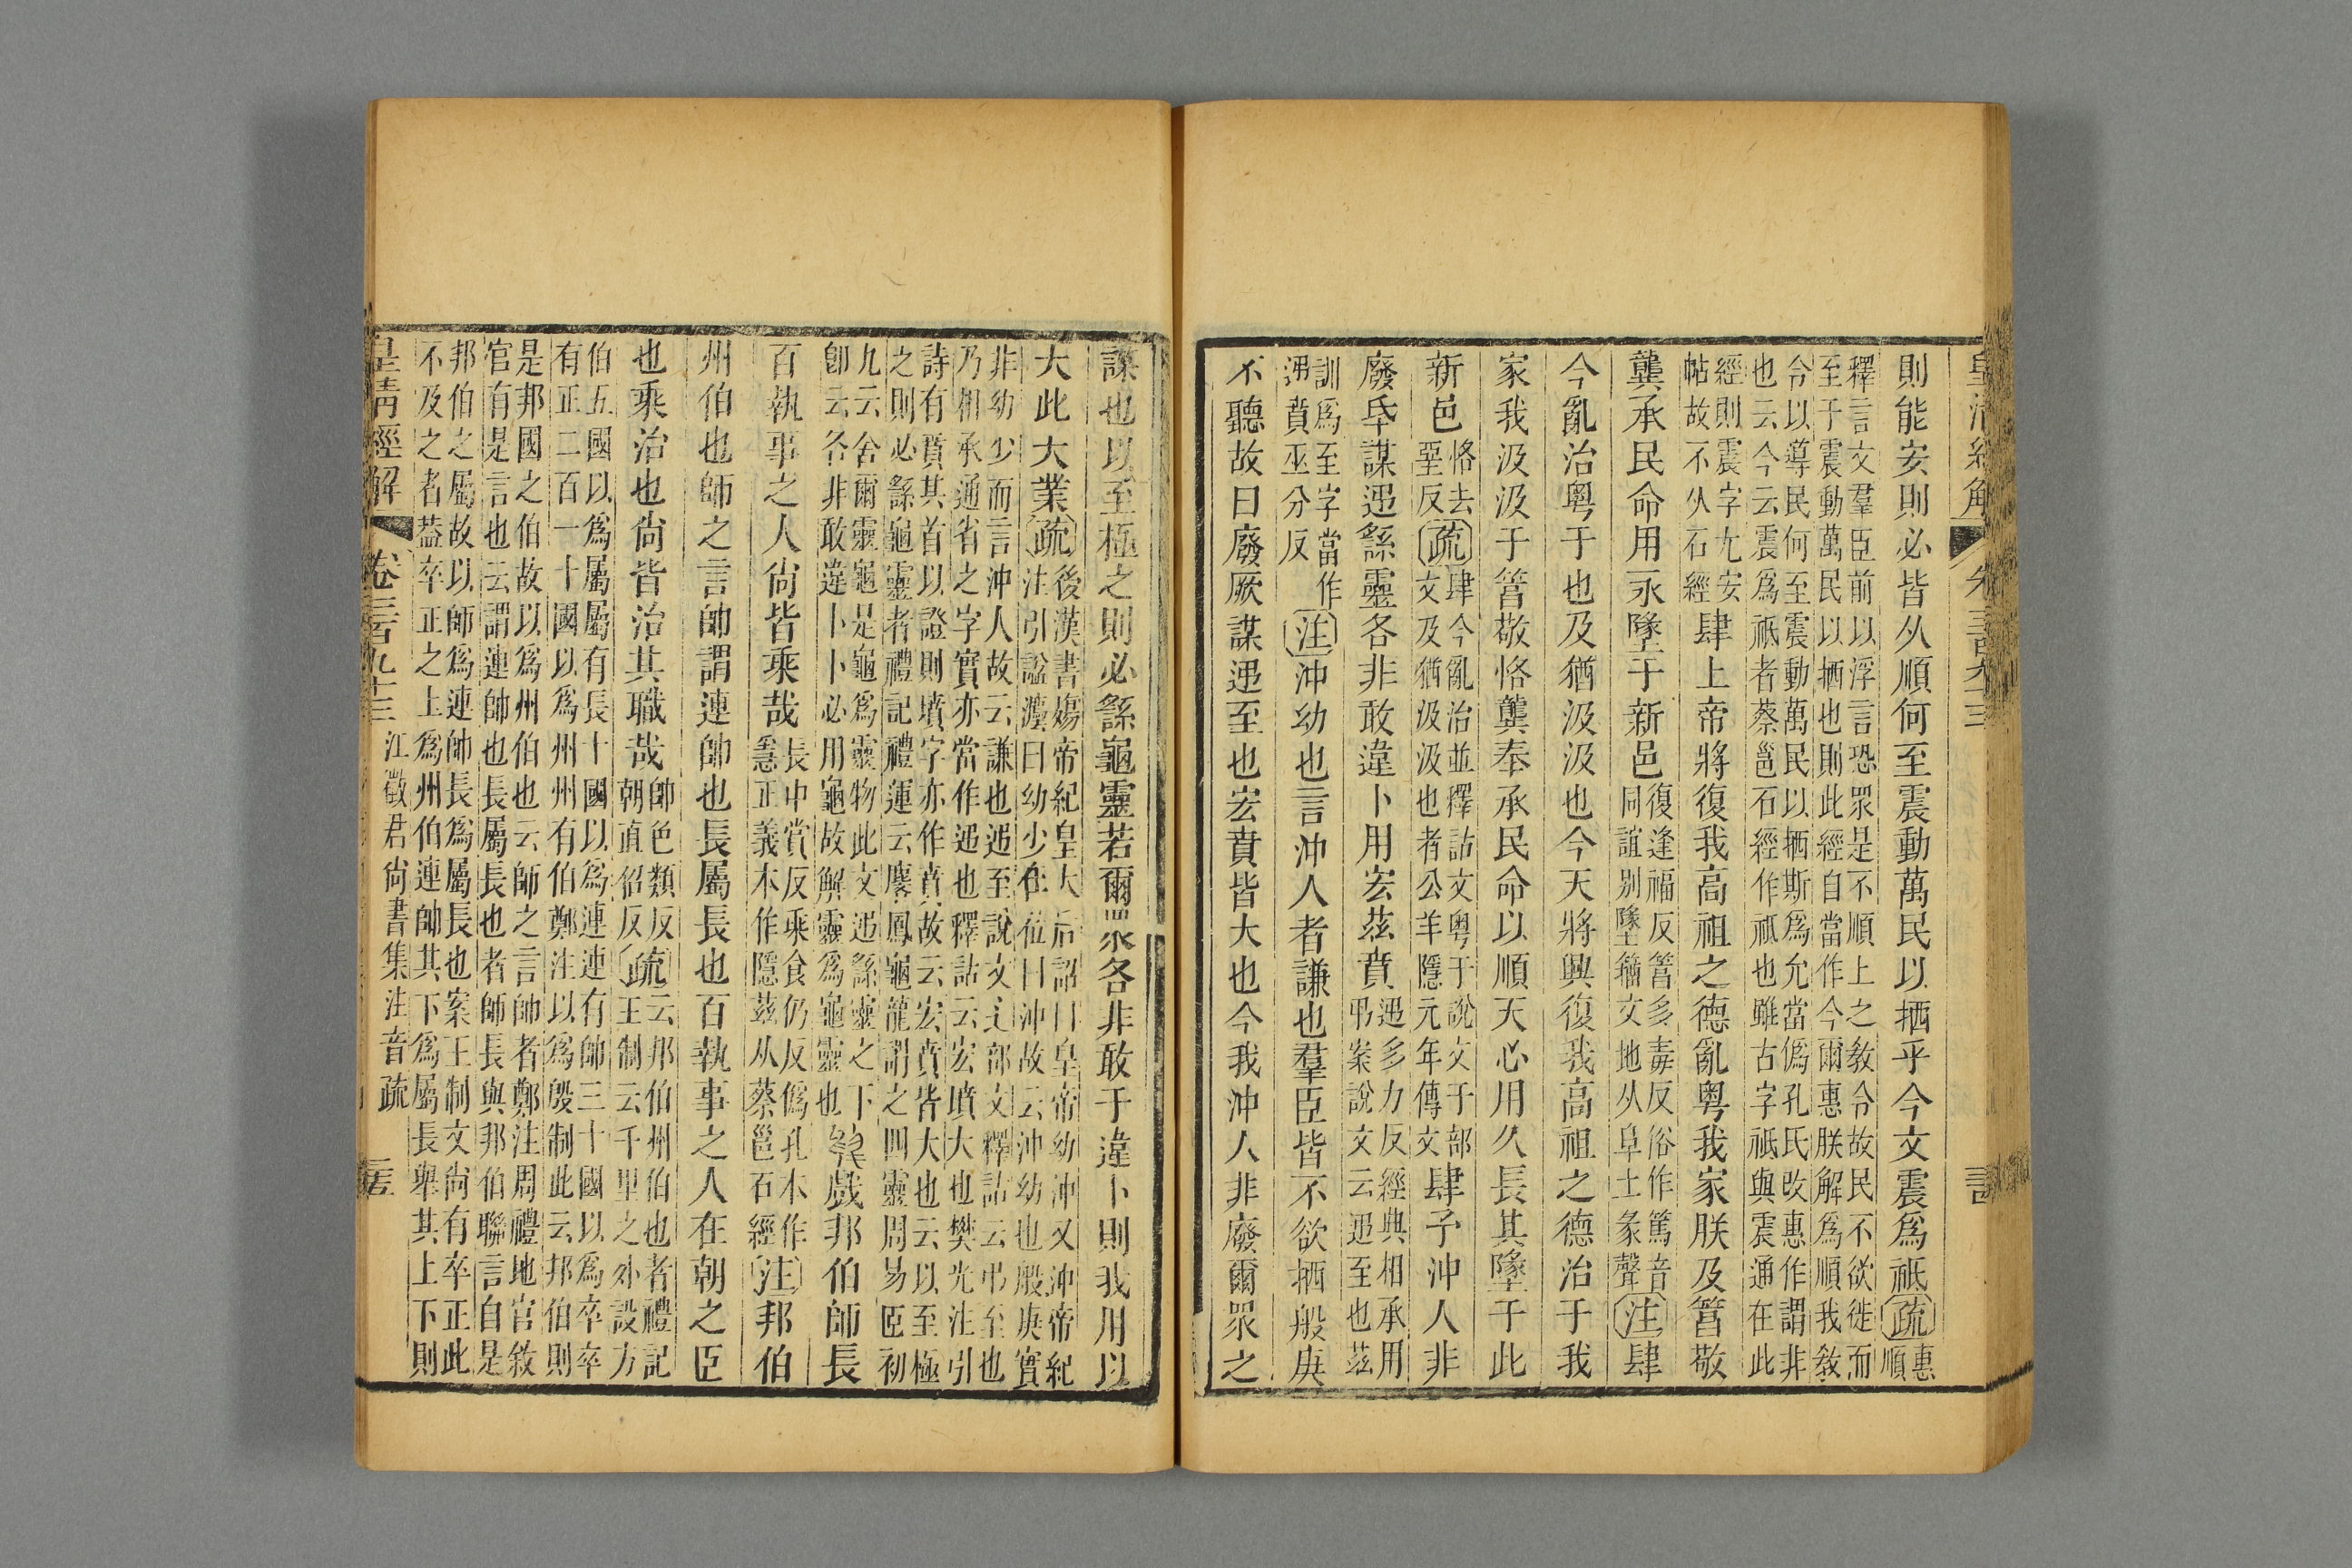 皇清經解 卷三百九十三
則能安則必皆从順何至震動萬民以拪乎今文震爲祗疏惠
順
釋言文羣臣前以浮言恐眾是不順上之教令故民不欲徙而
至于震動萬民以拪也則此經自當作今爾惠朕解爲順我教
令以導民何至震動萬民以拪斯爲允當僞孔氏改惠作謂非
也云今云震爲祗者蔡邕石經作祗也雖古字祗與震通在此
經則震字尢安
帖故不从石經
肆上帝將復我高祖之德亂粤我家朕及䈞敬
龔承民命用永墬于新邑
復逢福反䈞多毒反俗作篤音
同誼别墬籒文地从阜土彖聲
注肆
今亂治粤于也及猶汲汲也今天將興復我高祖之德治于我
家我汲汲于䈞敬恪龔奉承民命以順天心用久長其墬于此
新邑
恪去
堊反
疏
肆今亂治並釋詁文粤于說文于部
文及猶汲汲也者公羊隱元年傳文
肆予沖人非
廢氒謀𨑩䌛靈各非敢違卜用宏茲賁
𨑩多力反經典相承用
弔案說文云𨑩至也茲
訓爲至字當作
𨑩賁巫分反
注沖幼也言沖人者謙也羣臣皆不欲拪般庚
不聽故曰廢厥謀𨑩至也宏賁皆大也今我沖人非廢爾眾之
謀也以至極之則必䌛龜靈若爾眾各非敢于違卜則我用以
大此大業疏
後漢書殤帝紀皇太后詔曰皇帝幼沖又沖帝紀
注引謚灋曰幼少在位曰沖故云沖幼也般庚實
非幼少而言沖人故云謙也𨑩至說文辵部文釋詁云弔至也
乃相承通省之字實亦當作𨑩也釋詁云宏墳大也樊光注引
詩有賁其首以證則墳字亦作賁故云宏賁皆大也云以至極
之則必䌛龜靈者禮記禮運云麐鳳龜龍謂之四靈周易臣初
九云舍爾靈龜是龜爲靈物此文𨑩䌛靈之下
卽云各非敢違卜卜必用龜故解靈爲龜靈也
戲邦伯師長
百執事之人尙皆乘哉
長中賞反乘食仍反僞孔本作
㥯正義本作隱茲从蔡邕石經
注邦伯
州伯也師之言帥謂連帥也長屬長也百執事之人在朝之臣
也乘治也尙皆治其職哉
帥色類反
朝直佋反
疏
云邦伯州伯也者禮記
王制云千里之外設方
伯五國以爲屬屬有長十國以爲連連有帥三十國以爲卒卒
有正二百一十國以爲州州有伯鄭注以爲殷制此云邦伯則
是邦國之伯故以爲州伯也云師之言帥者鄭注周禮地官敘
官有是言也云謂連帥也長屬長也者師長與邦伯聯言自是
邦伯之屬故以師爲連帥長爲屬長也案王制文尙有卒正此
不及之者葢卒正之上爲州伯連帥其下爲屬長舉其上下則
皇清經解 卷三百九十三 江徵君尙書集注音疏